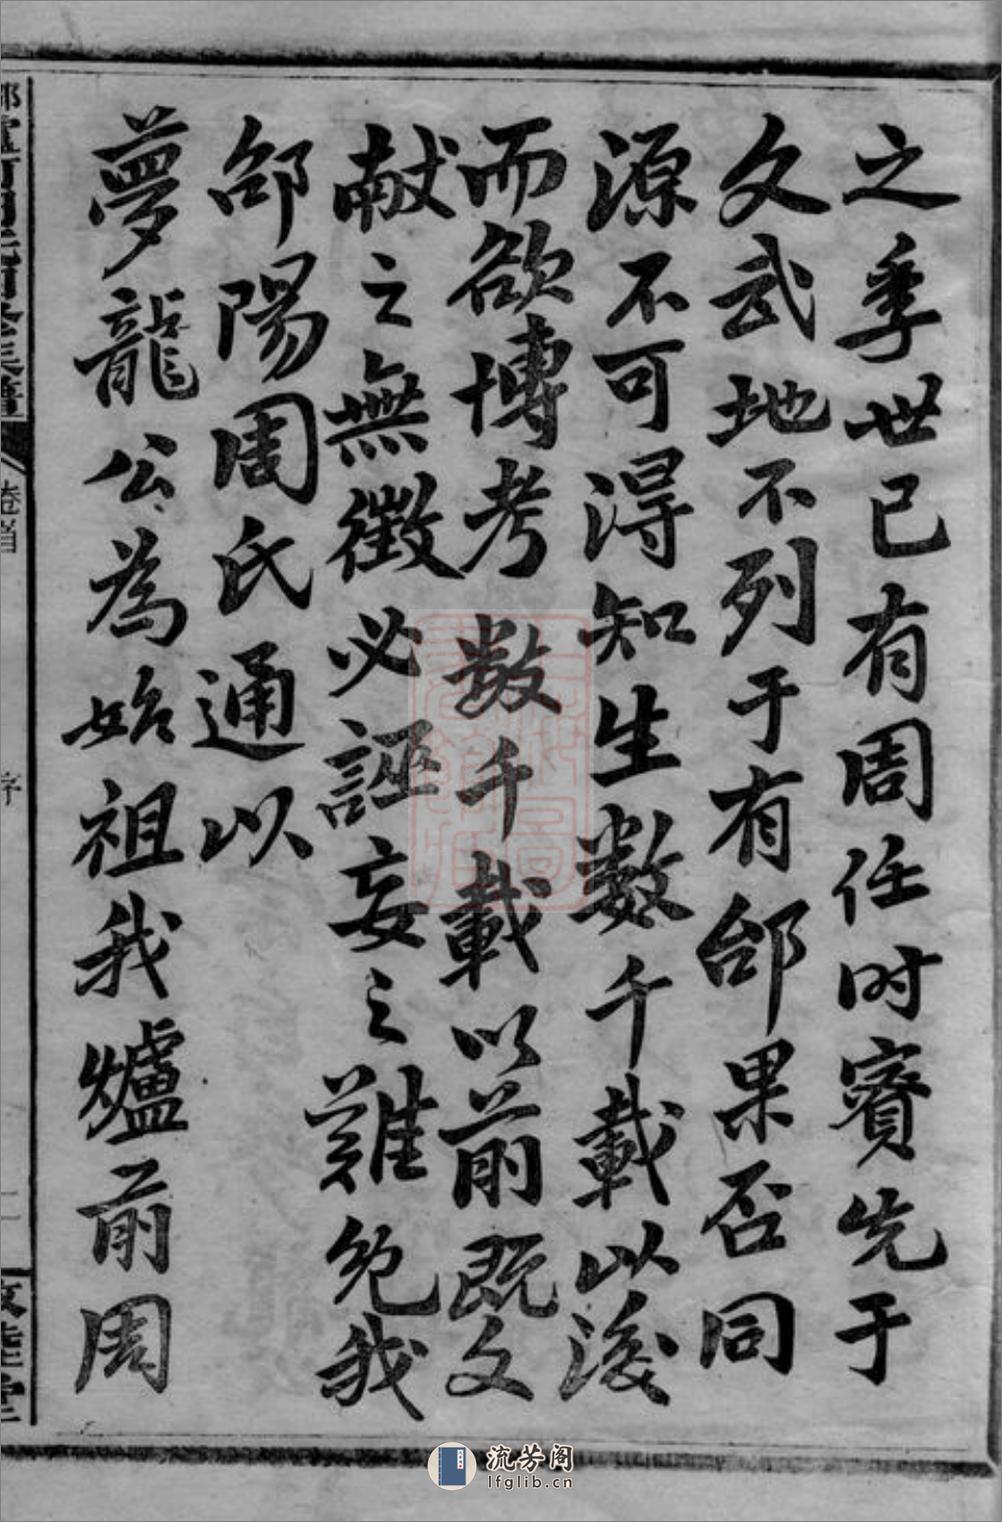 之季世已有周任时賓先于
文武地不列于有邰果否同
源不可得知生數千載以後
而欲博考数千載以前既文
献之無徵必誣妄之難免我
邰陽周氏通以
夢龍公為始祖我爐前周
卷首
序
二
流芳阁
lfglib.cn